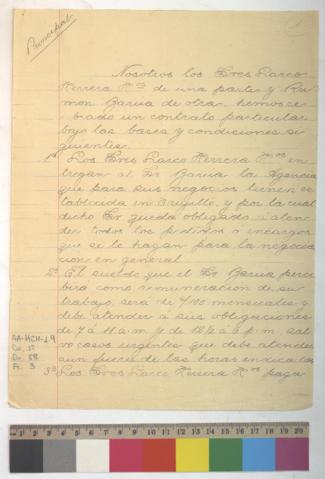 Principal
1
Nosotros los Sres Larco
Herrera Hnos de una parte y Ra-
mon Barua de otra hemos ce-
brado un contrato particular
bajo las bases y condiciones si-
guientes.
1º Los Sres Larco Herrera Hnos en-
tregan al Sr Barua la Agencia
que para sus negocios tienen es-
tablecida en Trujillo, y por la cual
dicho Sr queda obligado á aten-
der todos los pedidos o encargos
que se le hagan para la negocia-
cion en general
2º El sueldo que el Sr Barua perci-
birá como remuneracion de su
trabajo, será de mensuales y
debe atender á sus obligaciones
de 7 á 11 a.m y de 12½ á 5 p.m. sal-
vo casos urgentes que debe atender
aun fuera de las horas indicadas
3º Los Sres Larco Herrera Hnos paga-
AA-HCH-1.9
Ca. 17
Do. 58
Fr. 3
1 2 3 4 5 6 7 8 9 10 11 12 13 14 15 16 17 18 19 20